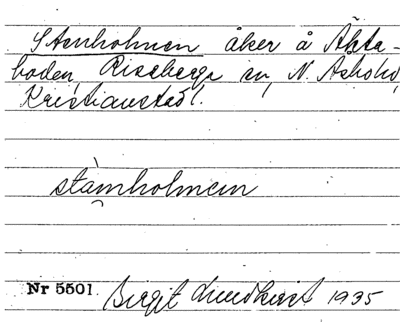 Stenholmen åker å Äkta-
boden, Riseberga sn, N. Åsbohd,
Kristianstad l.
stàmholmem
Nr 5501 Birgit Lundkvist 1935